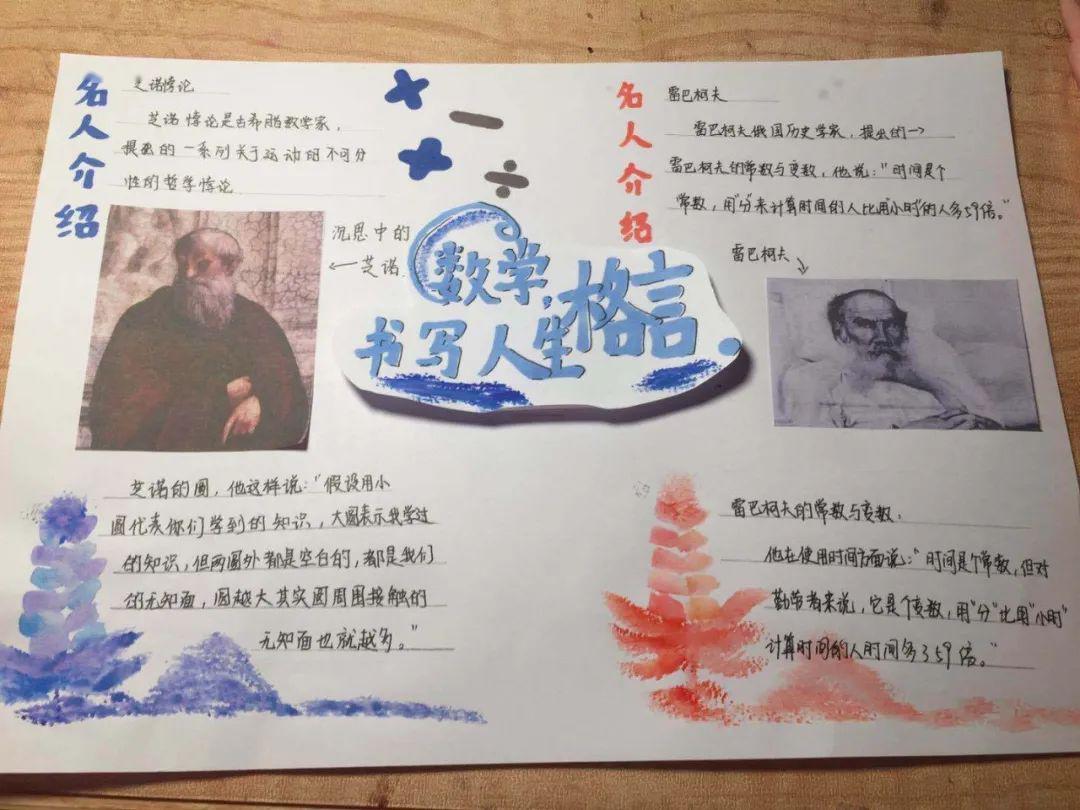 名人介绍
芝诺悖论
芝诺悖论是古希腊数学家，
提出的一系列关于运动的不可分
性的哲学悖论
沉思中的
←芝诺.
数学，
书写人生格言.
名人介绍
雷巴柯夫
雷巴柯夫俄国历史学家，提出的一→
雷巴柯夫的常数与变数，他说："时间是个
常数，用"分"来计算时间的人比用小时的人多59倍。"
雷巴柯夫
芝诺的圆，他这样说："假设用小
圆代表你们学到的知识，大圆表示我学过
的知识，但两圆外都是空白的，都是我们
的无知面，圆越大其实圆周围接触的
无知面也就越多。"
雷巴柯夫的常数与变数：
他在使用时间方面说："时间是个常数，但对
勤劳者来说，它是个变数，用"分"比用"小时"
计算时间的人时间多了59倍。"